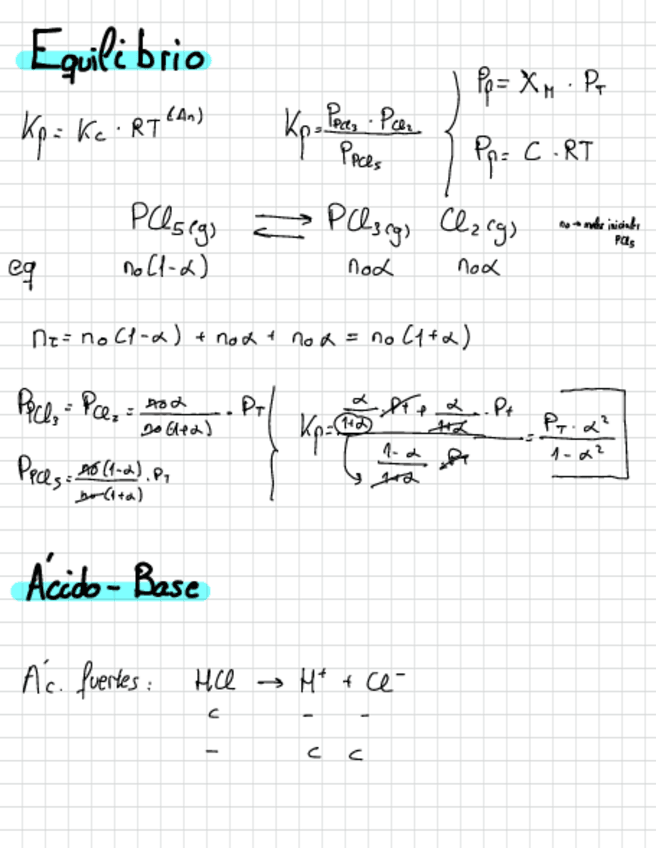 Equilibrio
Kp = Kc · RT^(Δn)
Kp = P_PCl₃ · P_Cl₂ / P_PCl₅
Pp = X_M · P_T
Pp = C · RT
PCl₅(g) ⇌ PCl₃(g) Cl₂(g)
n₀ → moles iniciales PCl₅
eq n₀(1-α) n₀α n₀α
n_T = n₀(1-α) + n₀α + n₀α = n₀(1+α)
P_PCl₃ = P_Cl₂ = n₀α / n₀(1+α) · P_T
P_PCl₅ = n₀(1-α) / n₀(1+α) · P_T
Kp = (α/(1+α) · Pt + α/(1+α) · Pt) / ((1-α)/(1+α) · P_T) = P_T · α² / 1-α²
Ácido-Base
Ác. fuertes: HCl → H⁺ + Cl⁻
c - -
- c c